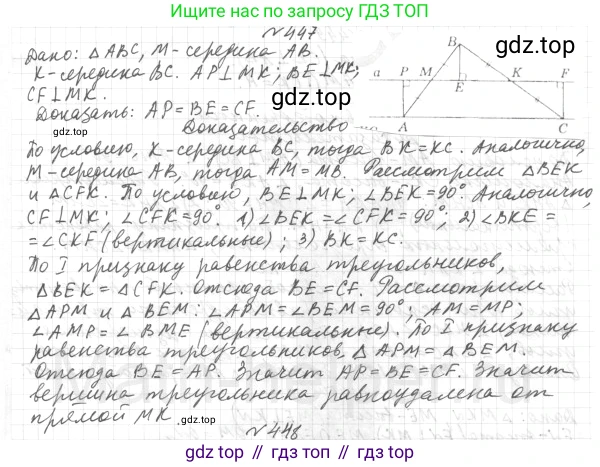 Ищите нас по запросу ГДЗ ТОП
№447
Дано: △ABC, M-середина AB.
K-середина BC. AP⊥MK; BE⊥MK;
CF⊥MK.
Доказать: AP=BE=CF.
a P M B E K F A C
гдз топ
гдз топ
гдз топ
гдз топ
Доказательство
По условию, K-середина BC, тогда BK=KC. Аналогично,
M-середина AB, тогда AM=MB. Рассмотрим △BEK
и △CFK. По условию, BE⊥MK; ∠BEK=90°. Аналогично,
CF⊥MK; ∠CFK=90°. 1) ∠BEK=∠CFK=90°; 2) ∠BKE=
=∠CKF (вертикальные); 3) BK=KC.
По I признаку равенства треугольников,
△BEK=△CFK. Отсюда BE=CF. Рассмотрим
△APM и △BEM: ∠APM=∠BEM=90°; AM=MP;
∠AMP=∠BME (вертикальные). По I признаку
равенства треугольников, △APM=△BEM.
Отсюда BE=AP. Значит AP=BE=CF. Значит
вершина треугольника равноудалена от
прямой MK.
№448
гдз топ
гдз топ
vk.com // gdz top // гдз топ